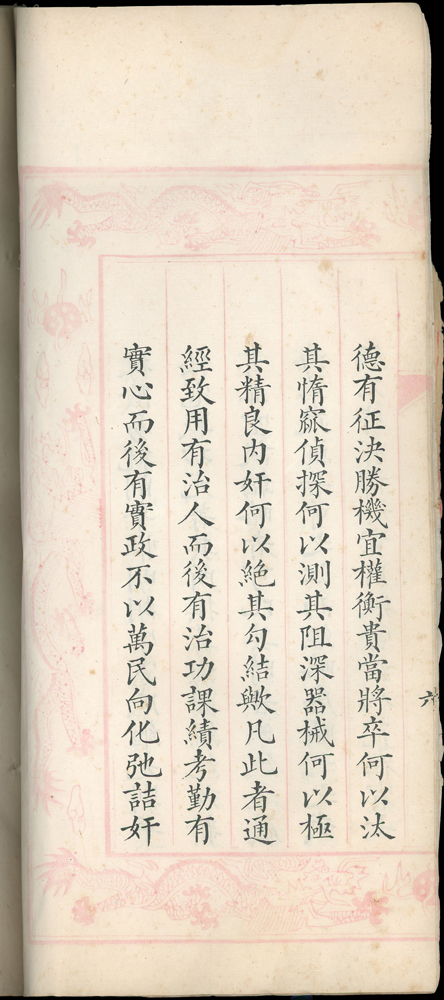 德有征決勝機宜權衡貴當將卒何以汰
其惰窳偵探何以測其阻深器械何以極
其精良內奸何以絕其勾結歟凡此者通
經致用有治人而後有治功課績考勤有
實心而後有實政不以萬民向化弛詰奸
六